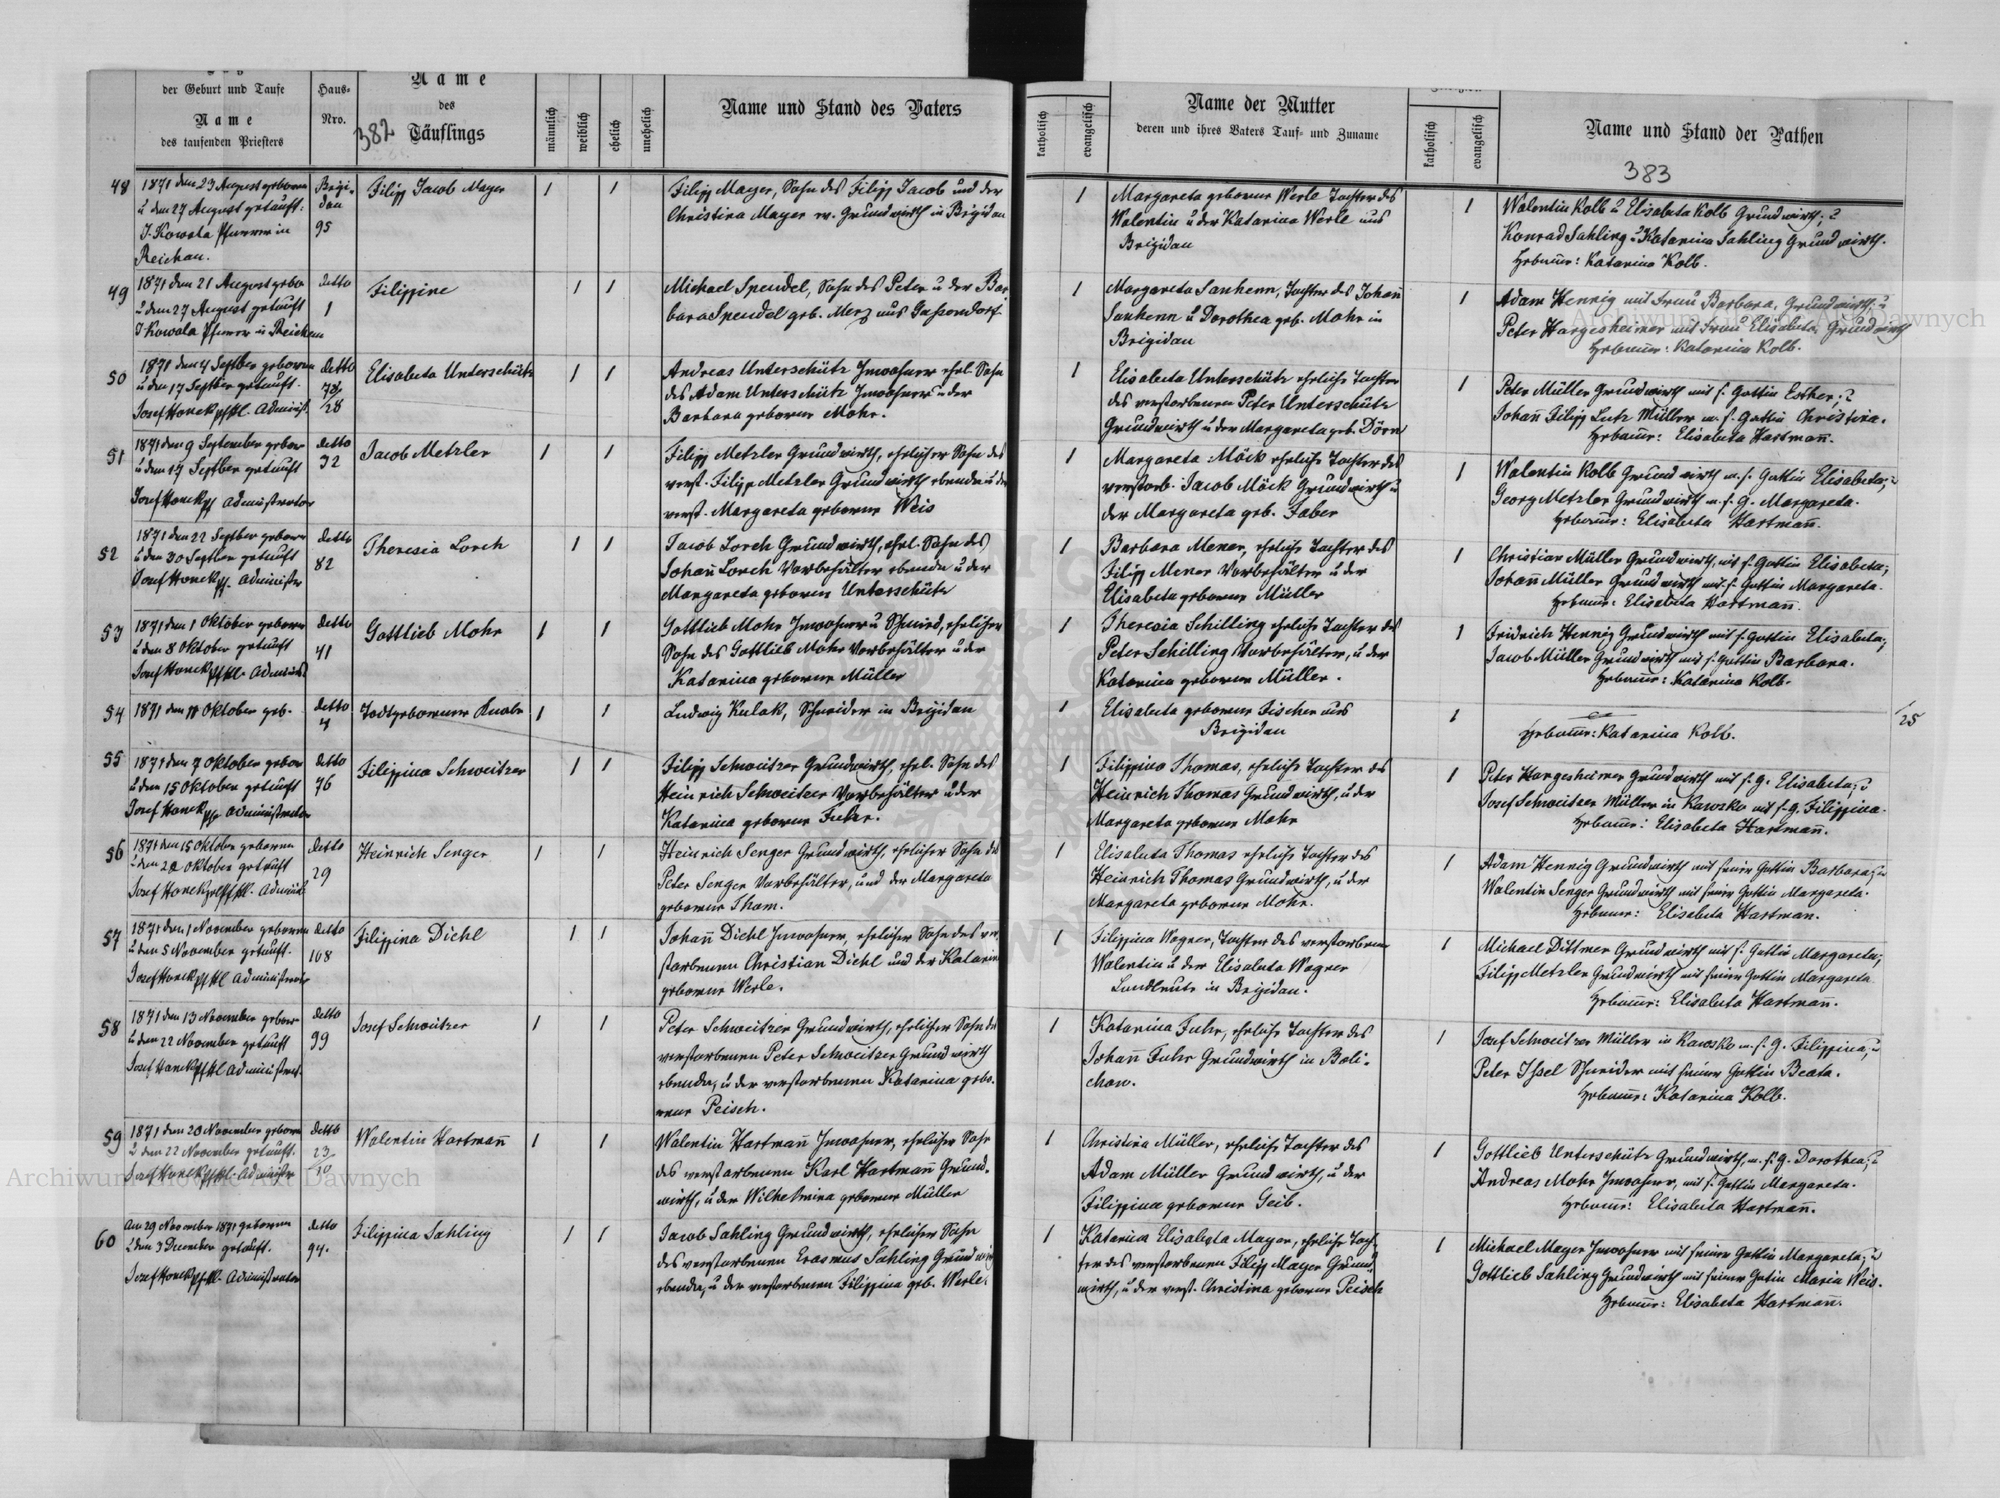 der Geburt und Taufe
Name
des taufenden Priesters
Haus-
Nro.
Name
des
Täuflings
382
männlich
weiblich
ehelich
unehelich
Name und Stand des Vaters
katholisch
evangelisch
Name der Mutter
deren und ihres Vaters Tauf- und Zuname
katholisch
evangelisch
Name und Stand der Pathen
383
48
1871 den 23 August geboren
u den 27 August getauft.
J. Kowala Pfarrer in
Reichau.
Brigi-
dau
95
Filipp Jacob Mayer
1
1
Filipp Mayer, Sohn des Filipp Jacob und der
Christina Mayer ev. Grundwirth in Brigidau
1
Margareta geborne Werle Tochter des
Walentin u der Katarina Werle aus
Brigidau
1
Walentin Kolb u Elisabeta Kolb Grundwirth; u
Konrad Sahling u Katarina Sahling Grundwirth.
Hebamme: Katarina Kolb.
49
1871 den 21 August gebo
u den 27 August getauft
J Kowala Pfarrer in Reichau
detto
1
Filippine
1
1
Michael Spendel, Sohn des Peter u der Bar
bara Spendel geb. Merz aus Gassendorf
1
Margareta Sauhenn, Tochter des Johann
Sauhenn u Dorothea geb. Mohr in
Brigidau
1
Adam Hennig mit Frau Barbara, Grundwirth, u
Peter Hargesheimer mit Frau Elisabeta, Grundwirth
Hebamme: Katarina Kolb.
50
1871 den 4 Septber geboren
u den 17 Septber getauft.
Josef Honek Administ.
detto
78/28
Elisabeta Unterschütz
1
1
Andreas Unterschütz Inwohner ehel. Sohn
des Adam Unterschütz Inwohner u der
Barbara geborne Mohr.
1
Elisabeta Unterschütz eheliche Tochter
des verstorbenen Peter Unterschütz
Grundwirth u der Margareta geb. Dörn
1
Peter Müller Grundwirth mit s. Gattin Esther; u
Johann Filipp Lutz Müller m. s. Gattin Christina.
Hebamme: Elisabeta Hartmann.
51
1871 den 9 September gebor
u den 17 Septber getauft
Josef Honek Administrator
detto
32
Jacob Metzler
1
1
Filipp Metzler Grundwirth, ehelicher Sohn des
verst. Filipp Metzler Grundwirth ebenda u der
verst. Margareta geborne Weis
1
Margareta Möck eheliche Tochter des
verstorb. Jacob Möck Grundwirth u
der Margareta geb. Faber
1
Walentin Kolb Grundwirth m. s. Gattin Elisabeta; u
Georg Metzler Grundwirth m. s. G. Margareta.
Hebamme: Elisabeta Hartmann.
52
1871 den 22 Septber geboren
u den 30 Septber getauft
Josef Honek Administr
detto
82
Theresia Lorch
1
1
Jacob Lorch Grundwirth, ehel. Sohn des
Johann Lorch Vorbehälter ebenda u der
Margareta geboren Unterschütz
1
Barbara Mener, eheliche Tochter des
Filipp Mener Vorbehälter u der
Elisabeta geborene Müller
1
Christian Müller Grundwirth, mit s. Gattin Elisabeta;
Johann Müller Grundwirth mit s. Gattin Margareta.
Hebamme: Elisabeta Hartmann.
53
1871 den 1 Oktober geboren
u den 8 Oktober getauft
Josef Honek Administ
detto
41
Gottlieb Mohr
1
1
Gottlieb Mohr Inwohner u Schmied, ehelicher
Sohn des Gottlieb Mohr Vorbehälter u der
Katarina geborne Müller
1
Theresia Schilling eheliche Tochter des
Peter Schilling Vorbehälter, u der
Katarina geborne Müller.
1
Fridrich Hennig Grundwirth mit s. Gattin Elisabeta;
Jacob Müller Grundwirth mit s. Gattin Barbara.
Hebamme: Katarina Kolb.
54
1871 den Oktober geb.
detto
4
Todtgeborener Knabe
1
1
Ludwig Kulak, Schneider in Brigidau
1
Elisabeta geborne Fischer aus
Brigidau
1
Hebamme: Katarina Kolb.
25
55
1871 den 7 Oktober gebor
u den 15 Oktober getauft
Josef Honek Administrator
detto
76
Filippina Schweitzer
1
1
Filipp Schweitzer Grundwirth, ehel. Sohn des
Heinrich Schweitzer Vorbehälter u der
Katarina geborne Fuhr.
1
Filippina Thomas, eheliche Tochter des
Heinrich Thomas Grundwirth, u der
Margareta geborne Mohr
1
Peter Hargesheimer Grundwirth mit s. G. Elisabeta; u
Josef Schweitzer Müller in Kawsko mit s. G. Filippina.
Hebamme: Elisabeta Hartmann.
56
1871 den 15 Oktober geboren
u den 22 Oktober getauft
Josef Honek Administ
detto
29
Heinrich Senger
1
1
Heinrich Senger Grundwirth, ehelicher Sohn des
Peter Senger Vorbehälter, und der Margareta
geborne Thom.
1
Elisabeta Thomas eheliche Tochter des
Heinrich Thomas Grundwirth, u der
Margareta geborne Mohr.
1
Adam Hennig Grundwirth mit seiner Gattin Barbara; u
Walentin Senger Grundwirth mit seiner Gattin Margareta.
Hebamme: Elisabeta Hartman.
57
1871 den 1 November geboren
u den 5 November getauft.
Josef Honek Administrator
detto
108
Filippina Diehl
1
1
Johann Diehl Inwohner, ehelicher Sohn des ver
storbenen Christian Diehl und der Katarina
geborne Werle.
1
Filippina Wagner, Tochter des verstorbenen
Walentin u der Elisabeta Wagner
Landleute in Brigidau.
1
Michael Dittmer Grundwirth mit s. Gattin Margareta;
Filipp Metzler Grundwirth mit seiner Gattin Margareta
Hebamme: Elisabeta Hartmann.
58
1871 den 13 November gebor
u den 22 November getauft
Josef Honek Administrat.
detto
99
Josef Schweitzer
1
1
Peter Schweitzer Grundwirth, ehelicher Sohn des
verstorbenen Peter Schweitzer Grundwirth
ebenda, u der verstorbenen Katarina gebo-
rene Peisch.
1
Katarina Fuhr, eheliche Tochter des
Johann Fuhr Grundwirth in Boli-
chow.
1
Josef Schweitzer Müller in Kawsko m. s. G. Filippina, u
Peter Issel Schneider mit seiner Gattin Beata.
Hebamme: Katarina Kolb.
59
1871 den 20 November geboren
u den 22 November getauft.
Josef Honek Administr
detto
23/10
Walentin Hartmann
1
1
Walentin Hartmann Inwohner, ehelicher Sohn
des verstorbenen Karl Hartmann Grund-
wirth, u der Wilhelmina geborene Müller
1
Christina Müller, eheliche Tochter des
Adam Müller Grundwirth, u der
Filippina geborene Geib.
1
Gottlieb Unterschütz Grundwirth, m. s. G. Dorothea; u
Andreas Mohr Inwohner, mit s. Gattin Margareta.
Hebamme: Elisabeta Hartmann.
60
Am 29 November 1871 geboren
u den 3 December getauft.
Josef Honek Administrator
detto
94.
Filippina Sahling
1
1
Jacob Sahling Grundwirth, ehelicher Sohn
des verstorbenen Erasmus Sahling Grundwirth
ebenda, u der verstorbenen Filippina geb. Werle.
1
Katarina Elisabeta Mayer, eheliche Toch-
ter des verstorbenen Filipp Mayer Grund-
wirth, u der verst. Christina geborne Peisch
1
Michael Mayer Inwohner mit seiner Gattin Margareta; u
Gottlieb Sahling Grundwirth mit seiner Gattin Maria Weis.
Hebamme: Elisabeta Hartmann.
Archiwum Główne Akt Dawnych
Archiwum Główne Akt Dawnych